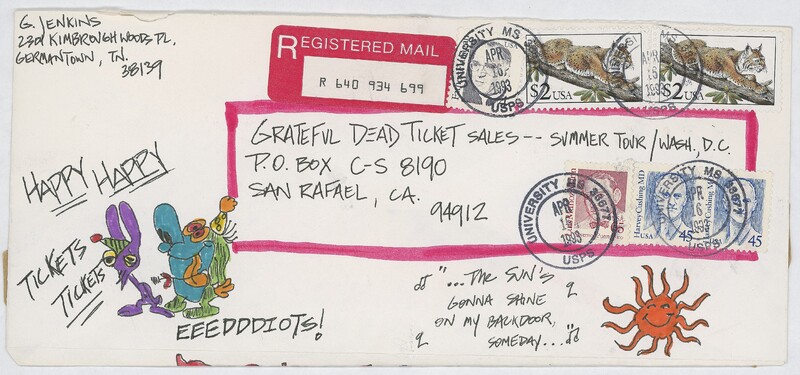 G. JENKINS
2301 KIMBROUGH WOODS PL.
GERMANTOWN, TN.
38139
REGISTERED MAIL
R 640 934 699
UNIVERSITY MS
APR
16
1993
USPS
USA
$2 USA
$2 USA
GRATEFUL DEAD TICKET SALES -- SUMMER TOUR/WASH, D.C.
P.O. BOX C-S 8190
SAN RAFAEL, CA.
94912
UNIVERSITY MS 38677
APR
1993
USPS
Harvey Cushing MD
45
Harvey Cushing MD
45
HAPPY HAPPY
TICKETS
TICKETS
EEEDDDIOTS!
"...THE SUN'S
GONNA SHINE
ON MY BACKDOOR,
SOMEDAY..."